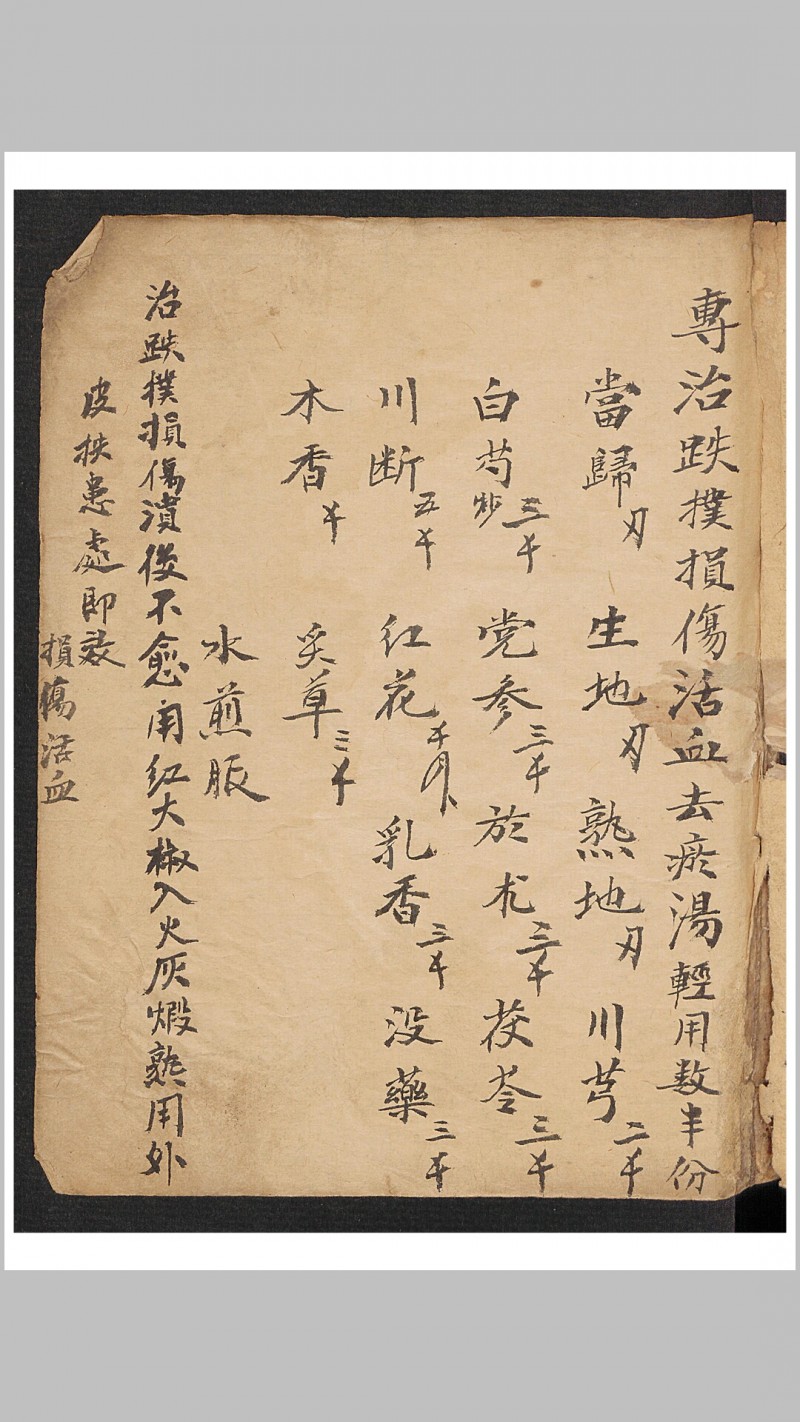 專治跌撲損傷活血去瘀湯輕用数半份
當歸刄 生地刄 熟地刄 川芎二千
白芍炒三千 党参三千 於朮三千 茯苓三千
川断五千 红花千 乳香三千 没藥三千
木香千 炙草三千
水煎服
治跌撲損傷潰後不愈用红大椒入火灰煅熟用外
皮挟患處即效
損傷活血